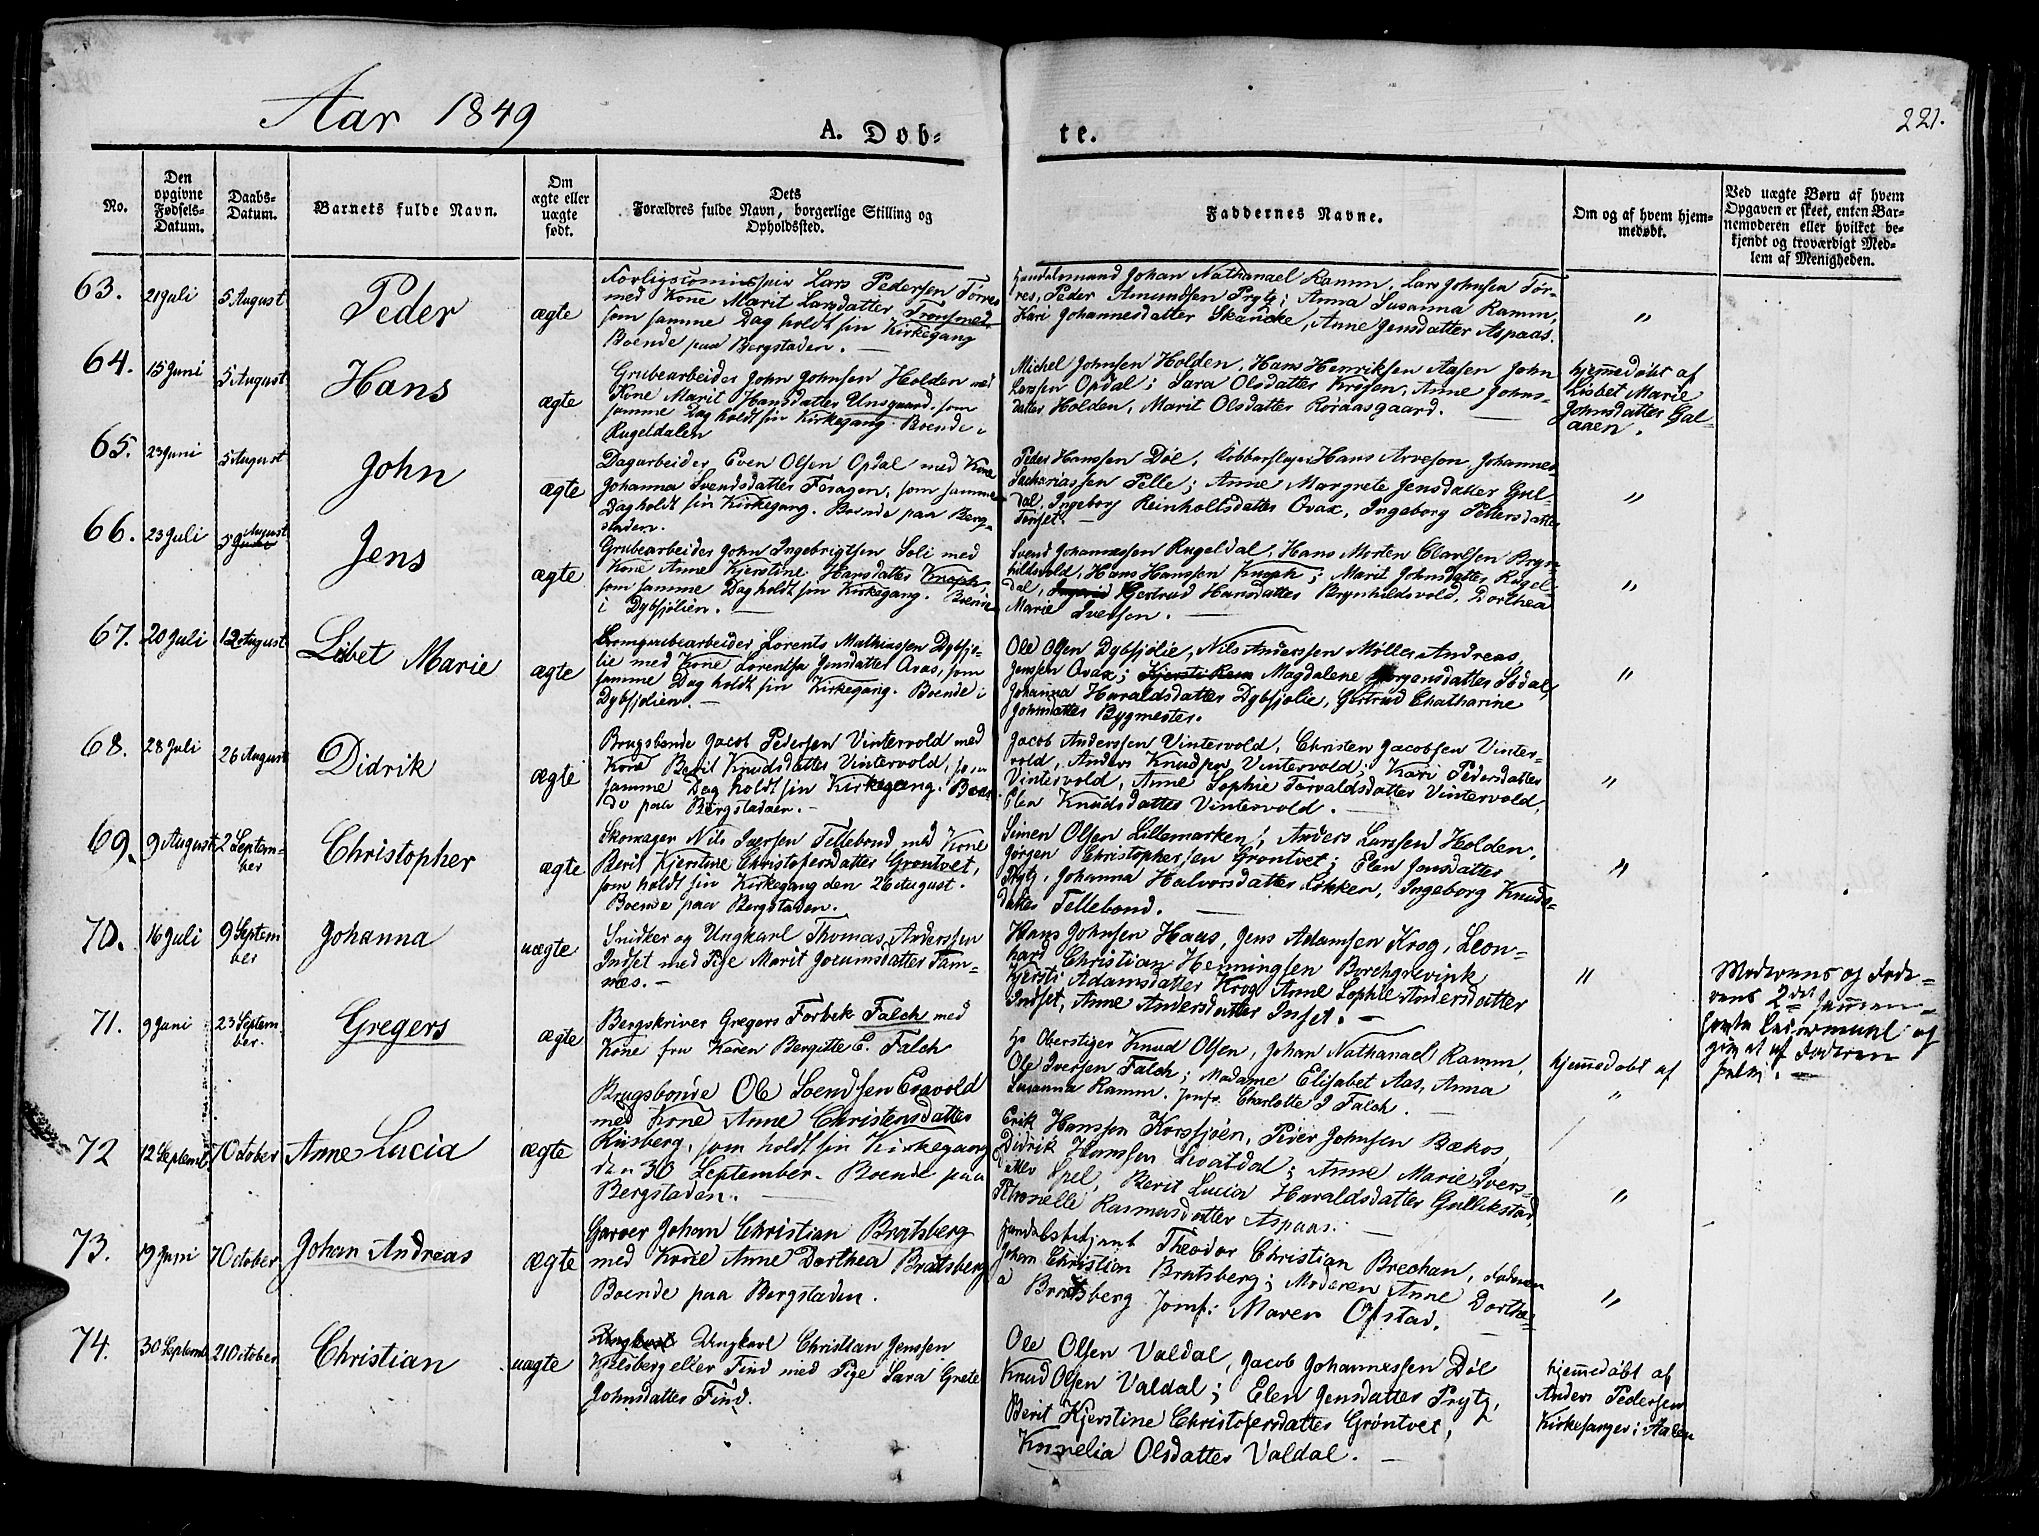 Aar 1849
A. Døb-
te.
221.
No.
Den opgivne Fødsels-Datum.
Daabs-Datum.
Barnets fulde Navn.
Om ægte eller uægte født.
Dets
Forældres fulde Navn, borgerlige Stilling og
Opholdssted.
Faddernes Navne.
Om og af hvem hjem-
medøbt.
Ved uægte Børn af hvem
Opgaven er skeet, enten Bar-
nemoderen eller hvilket be-
kjendt og troværdigt Med-
lem af Menigheden.
63. 21 Juli 5 August Peder ægte
Lars Pedersen Torres
med Kone Marit Larsdatter Tronsmed
som samme Dag holdt sin Kirkegang
Boende paa Bergstaden. —
Handelsmand Johan Nathanael Ramm, Lars Johnsen Tor-
res, Peder Amundsen Prytz; Anna Susanna Ramm,
Kari Johannesdatter Skancke, Anne Jensdatter Aspaas.
"
64. 15 Juni 5 August Hans ægte
Grubearbeider John Johnsen Holden med
Kone Marit Hansdatter Unsgaard, som
samme Dag holdt sin Kirkegang. Boende i
Rugeldalen
Michel Johnsen Holden, Hans Henriksen Aasen John
Larssen Opdal; Sara Olsdatter Krosen, Anne Johns-
datter Holden, Marit Olsdatter Røraasgaard. —
hjemmedøbt af
Lisbet Marie
Johnsdatter Gal-
aaen.
65. 23 Juni 5 August John ægte
Dagarbeider Even Olsen Opdal med Kone
Johanna Svendsdatter Foragen, som samme
Dag holdt sin Kirkegang. Boende paa Berg-
staden.
Peder Hanssen Døl, Kobberslager Hans Arvesen, Johannes
Sachariassen Pelle; Anne Margrete Jensdatter Gul-
dal, Ingeborg Reinholtsdatter Ovax, Ingeborg Pettersdatter
Tonset.
"
66. 23 Juli 5 August Jens ægte
Grubearbeider John Ingebrigtsen Soli med
Kone Anne Kjerstine Hansdatter Knoph
som samme Dag holdt sin Kirkegang. Boende
i Dybsjølien. —
Svend Johannessen Rugeldal, Hans Morten Clavesen Bryn-
hildsvold, Hans Hanssen Knoph; Marit Johnsdatter Rugel-
dal, Gertrud Hansdatter Brynhildsvold, Dorthea
Marie Iversen. —
"
67. 20 Juli 12 August Lisbet Marie ægte
Lorents Mathiassen Dybsjø-
lie med Kone Lorentse Jensdatter Ovas, som
samme Dag holdt sin Kirkegang. Boende i
Dybsjølien. —
Ole Olsen Dybsjølie, Nils Anderssen Møller, Andreas
Jenssen Ovax; Magdalene Jørgensdatter Sødal,
Johanna Haraldsdatter Dybsjølie, Gertrud Chatharine
Johnsdatter Bygmester.
"
68. 28 Juli 26 August Didrik ægte
Brugsbonde Jacob Pedersen Vintervold med
Kone Berit Knudsdatter Vintervold, som
samme Dag holdt sin Kirkegang. Boen-
de paa Bergstaden. —
Jacob Anderssen Vintervold, Christen Jacobsen Vinter-
vold, Anders Knudsen Vintervold; Kari Pedersdatter
Vintervold, Anne Sophie Torvaldsdatter Vintervold,
Elen Knudsdatter Vintervold. —
"
69. 9 August 2 September Christopher ægte
Skomager Nils Iversen Tellebond med Kone
Berit Kjerstine Christofersdatter Grøntvet,
som holdt sin Kirkegang den 26 August.
Boende paa Bergstaden.
Simen Olsen Lillemarken; Anders Larssen Holden,
Jørgen Christophersen Grøntvet; Elen Jensdatter
Prytz, Johanna Halvorsdatter Løkken, Ingeborg Knuds-
datter Tellebond. —
"
70. 16 Juli 9 September Johanna uægte
Snidker og Ungkarl Thomas Anderssen
Indset med Pige Marit Joramsdatter Tam-
næs. —
Hans Johnsen Haas, Jens Adamsen Krog, Leon-
hard Christian Henningsen Borchgrevink
Kjersti Adamsdatter Krog Anne Sophie Andersdatter
Indset, Anne Andersdatter Inset. —
"
Moderens og Fade-
rens 2det
og
af Faderen
71. 9 Juni 23 September. Gregers ægte
Bergskriver Gregers Forbek Falch med
Kone fru Karen Bergitte E. Falch
Hr Oberstiger Knud Olsen, Johan Nathanael Ramm,
Ole Iversen Falch; Madame Elisabet Aas, Anna
Susanna Ramm. Jomfr. Charlotte J Falch.
hjemmedøbt af
"
72 12 Septemb 7 October Anne Lucia ægte
Brugsbonde Ole Svendsen Engvold
med Kone Anne Christensdatter
Riisberg, som holdt sin Kirkegang
den 30 September. Boende paa
Bergstaden. —
Erik Hanssen Korssjøen, Peder Johnsen Bækos,
Didrik Hanssen Svatdal; Anne Marie Ivers-
datter Spel, Berit Lucia Haraldsdatter Gullikstad
Petronelle Rasmusdatter Aspaas. —
"
73. 19 Juni 7 October Johan Andreas ægte
Garver Johan Christian Bratsberg
med Kone Anne Dorthea Bratsberg
Boende paa Bergstaden.
Handelsbetjent Theodor Christian Brechan, Faderen
Johan Christian Bratsberg; Moderen Anne Dorthe-
a Bratsberg Jomf: Maren Opstad. —
"
74. 30 Septemb 21 October Christian uægte
Ungkarl Christian Jenssen
Kjelsberg eller Find med Pige Sara Grete
Johnsdatter Find.
Ole Olsen Valdal, Jacob Johannessen Døl
Knud Olsen Valdal; Elen Jensdatter Prytz,
Berit Kjerstine Christofersdatter Grøntvet,
Karelia Olsdatter Valdal. —
hjemmedøbt af
Anders Pedersen
Kirkesanger i Aalen